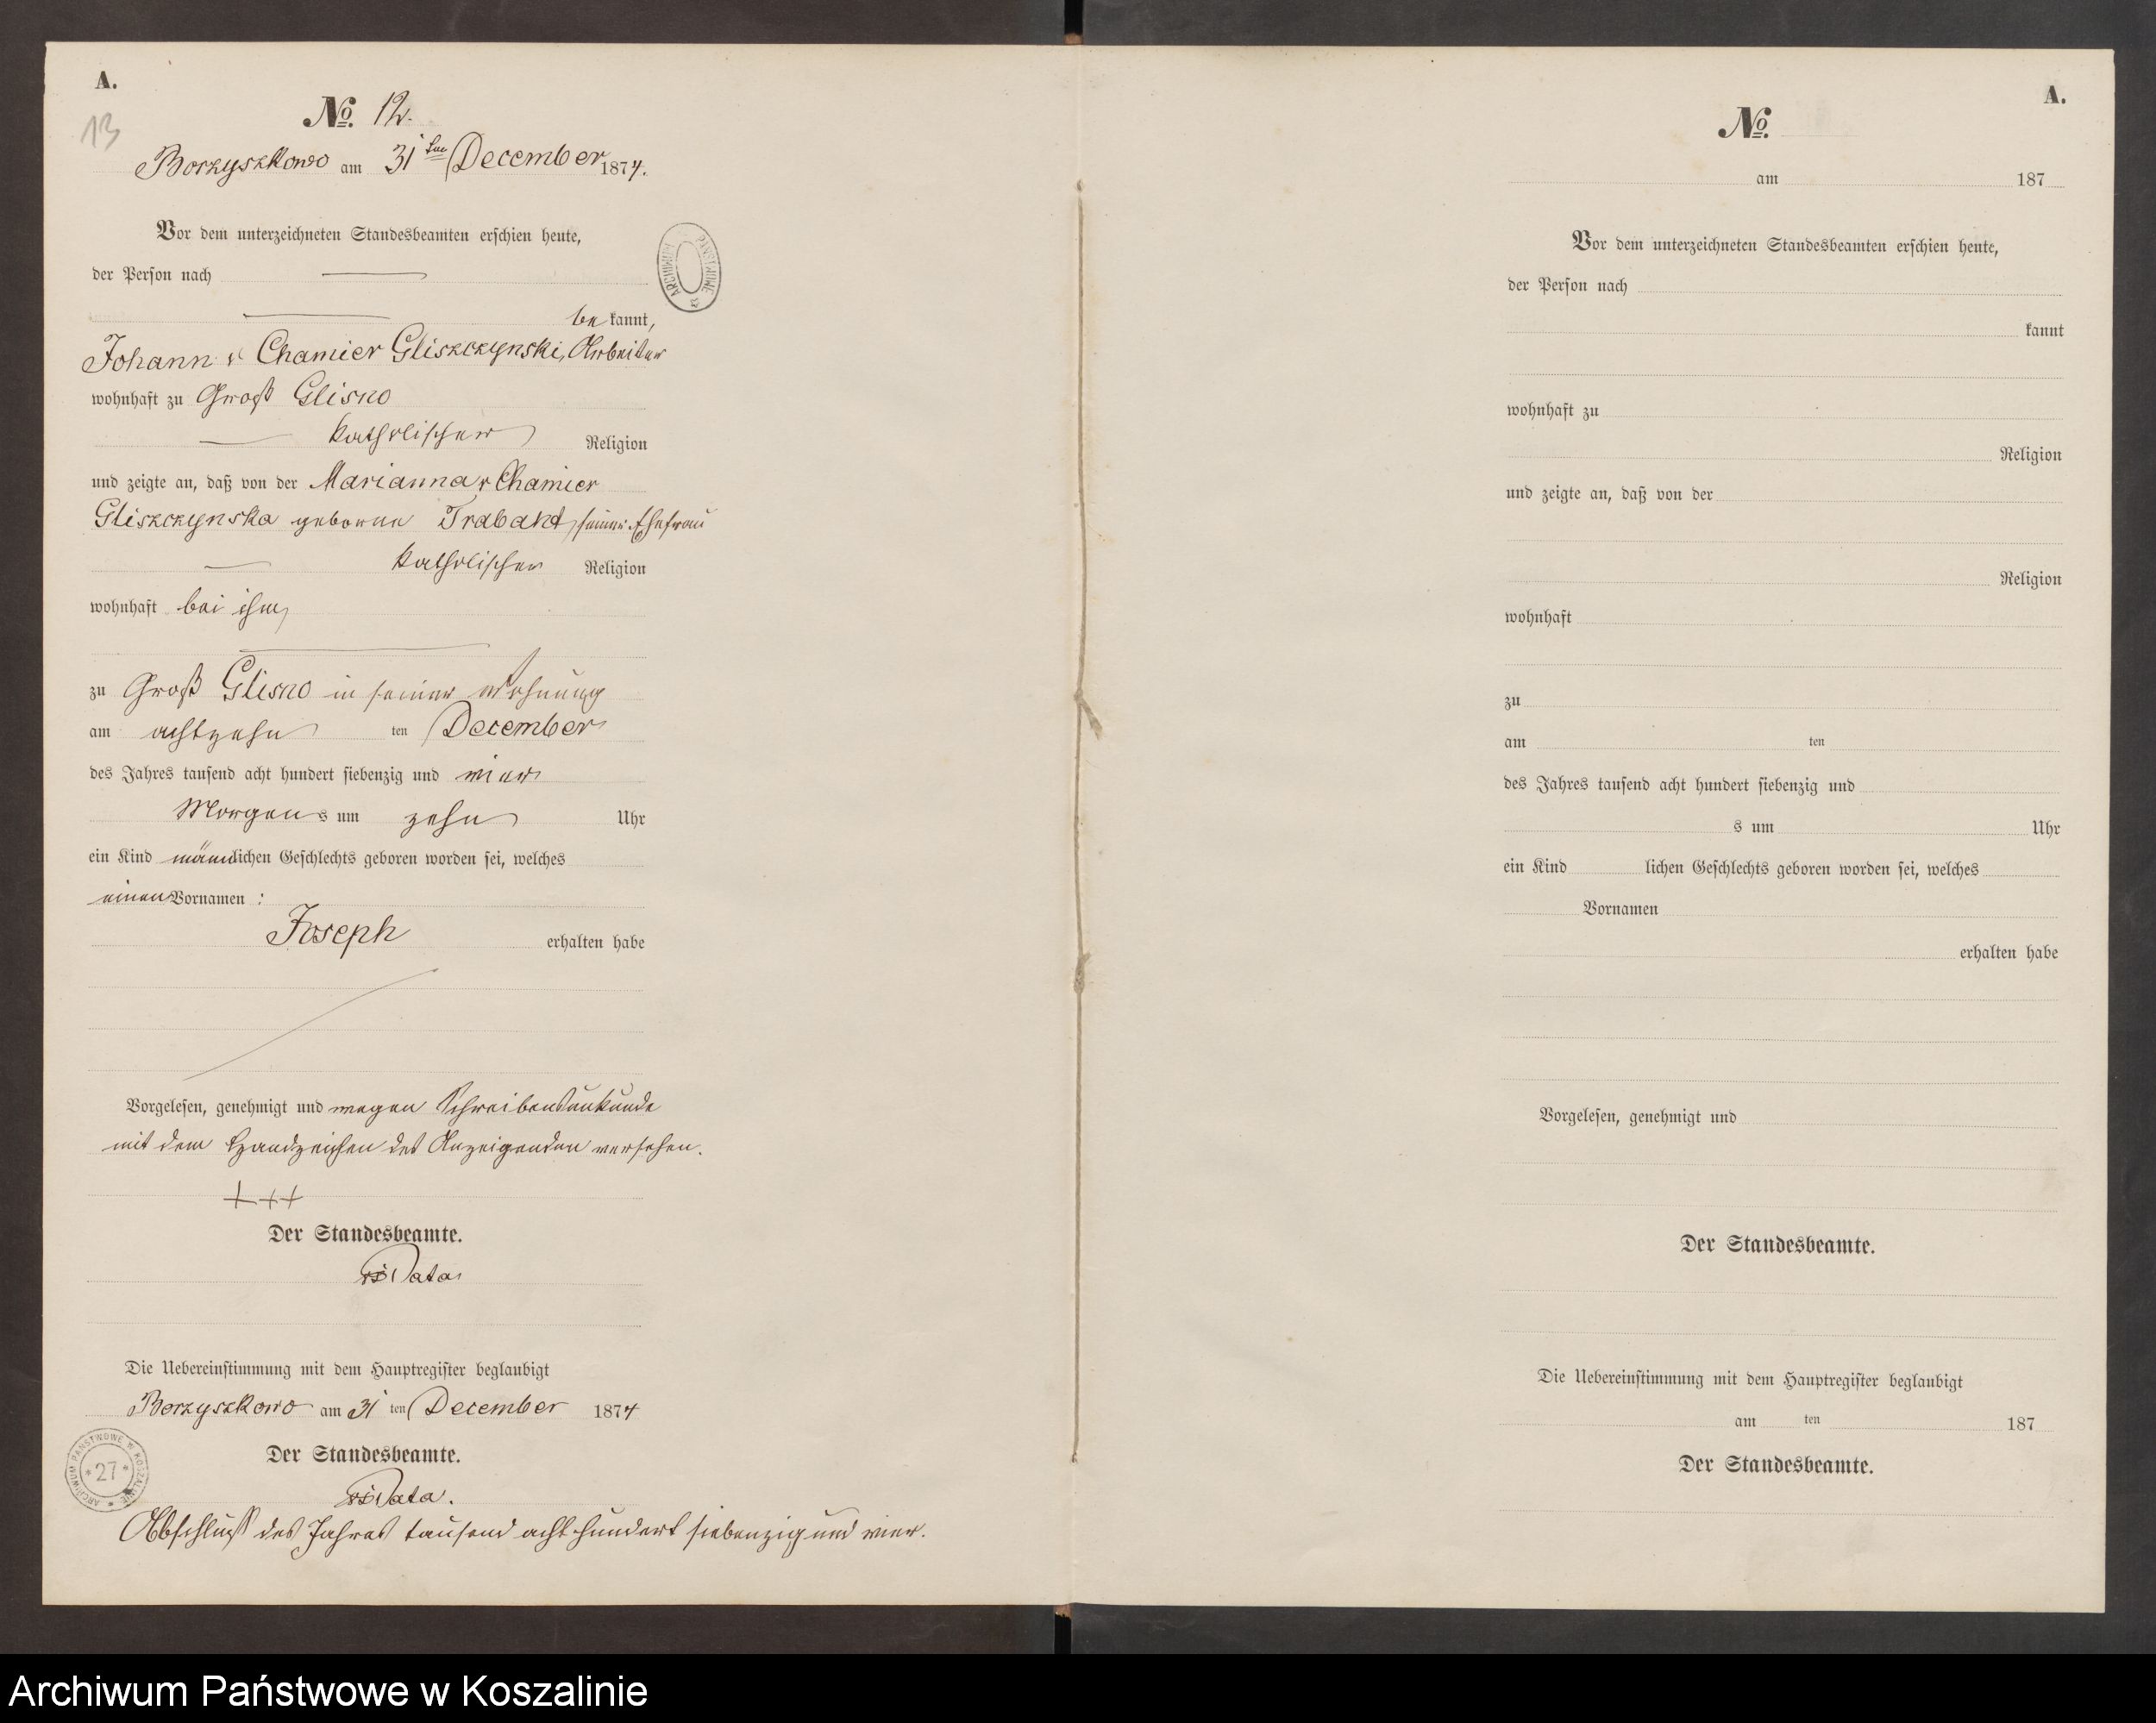 A.
13
No. 12.
Borzyszkowo am 31ten December 1874.
Vor dem unterzeichneten Standesbeamten erschien heute,
der Person nach
be kannt,
Johann v Chamier Gliszczynski, Arbeiter
wohnhaft zu Groß Glisno
katholischer Religion
und zeigte an, daß von der Marianna v Chamier
Gliszczynska geborne Trabant, seiner Ehefrau
katholischer Religion
wohnhaft bei ihm,
zu Groß Glisno in seiner Wohnung
am achtzehn ten December
des Jahres tausend acht hundert siebenzig und vier
Morgen s um zehn Uhr
ein Kind männlichen Geschlechts geboren worden sei, welches
einen Vornamen :
Joseph erhalten habe
Vorgelesen, genehmigt und wegen Schreibensunkunde
mit dem Handzeichen des Anzeigenden versehen.
+++
Der Standesbeamte.
Die Uebereinstimmung mit dem Hauptregister beglaubigt
Borzyszkowo am 31 ten December 1874
Der Standesbeamte.
Abschluß des Jahres tausend acht hundert siebenzig und vier.
ARCHIWUM PAŃSTWOWE
ARCHIWUM PAŃSTWOWE W KOSZALINIE
* 27 *
A.
No.
am 187
Vor dem unterzeichneten Standesbeamten erschien heute,
der Person nach
kannt
wohnhaft zu
Religion
und zeigte an, daß von der
Religion
wohnhaft
zu
am ten
des Jahres tausend acht hundert siebenzig und
s um Uhr
ein Kind lichen Geschlechts geboren worden sei, welches
Vornamen
erhalten habe
Vorgelesen, genehmigt und
Der Standesbeamte.
Die Uebereinstimmung mit dem Hauptregister beglaubigt
am ten 187
Der Standesbeamte.
Archiwum Państwowe w Koszalinie